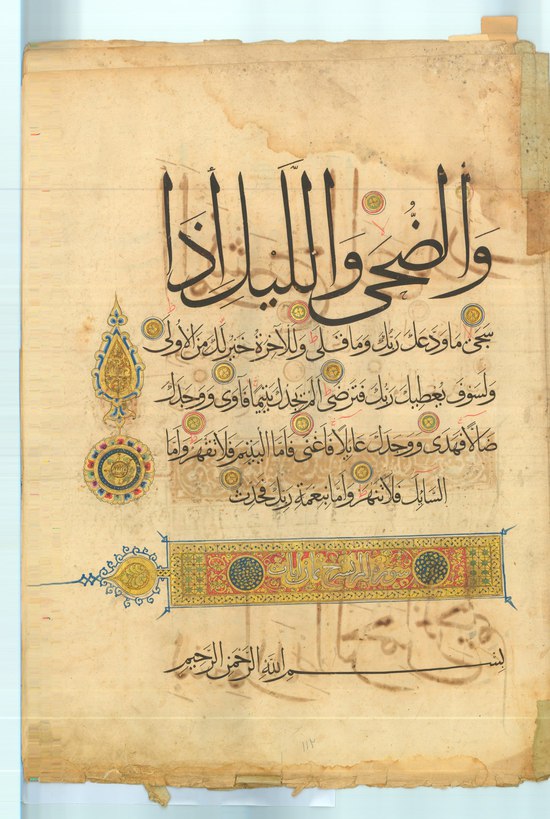 وَالضُّحَى وَاللَّيلِ أذَا
سَجَى مَا وَدعك ربّك وَمَا قلى وللآخرة خير لك من الأولى
ولسوف يعطيك ربك فترضى الم يجدك يتيما فآوى ووجدك
ضالا فهدى ووجدك عايلا فاغنى فاما اليتيم فلا تقهر واما
السايل فلا تنهر واما بنعمة ربك فحدث
بسم الله الرحمن الرحيم
١١٢